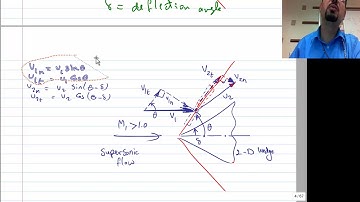 δ = deflection angle
V1n = V1 sin θ
V1t = V1 cos θ
V2n = V2 Sin(θ-δ)
V2t = V2 Cos(θ-δ)
V2t
V2n
V1t
V1n
V2
θ
V1
M1 > 1.0
θ
δ
Supersonic
flow
2-D wedge